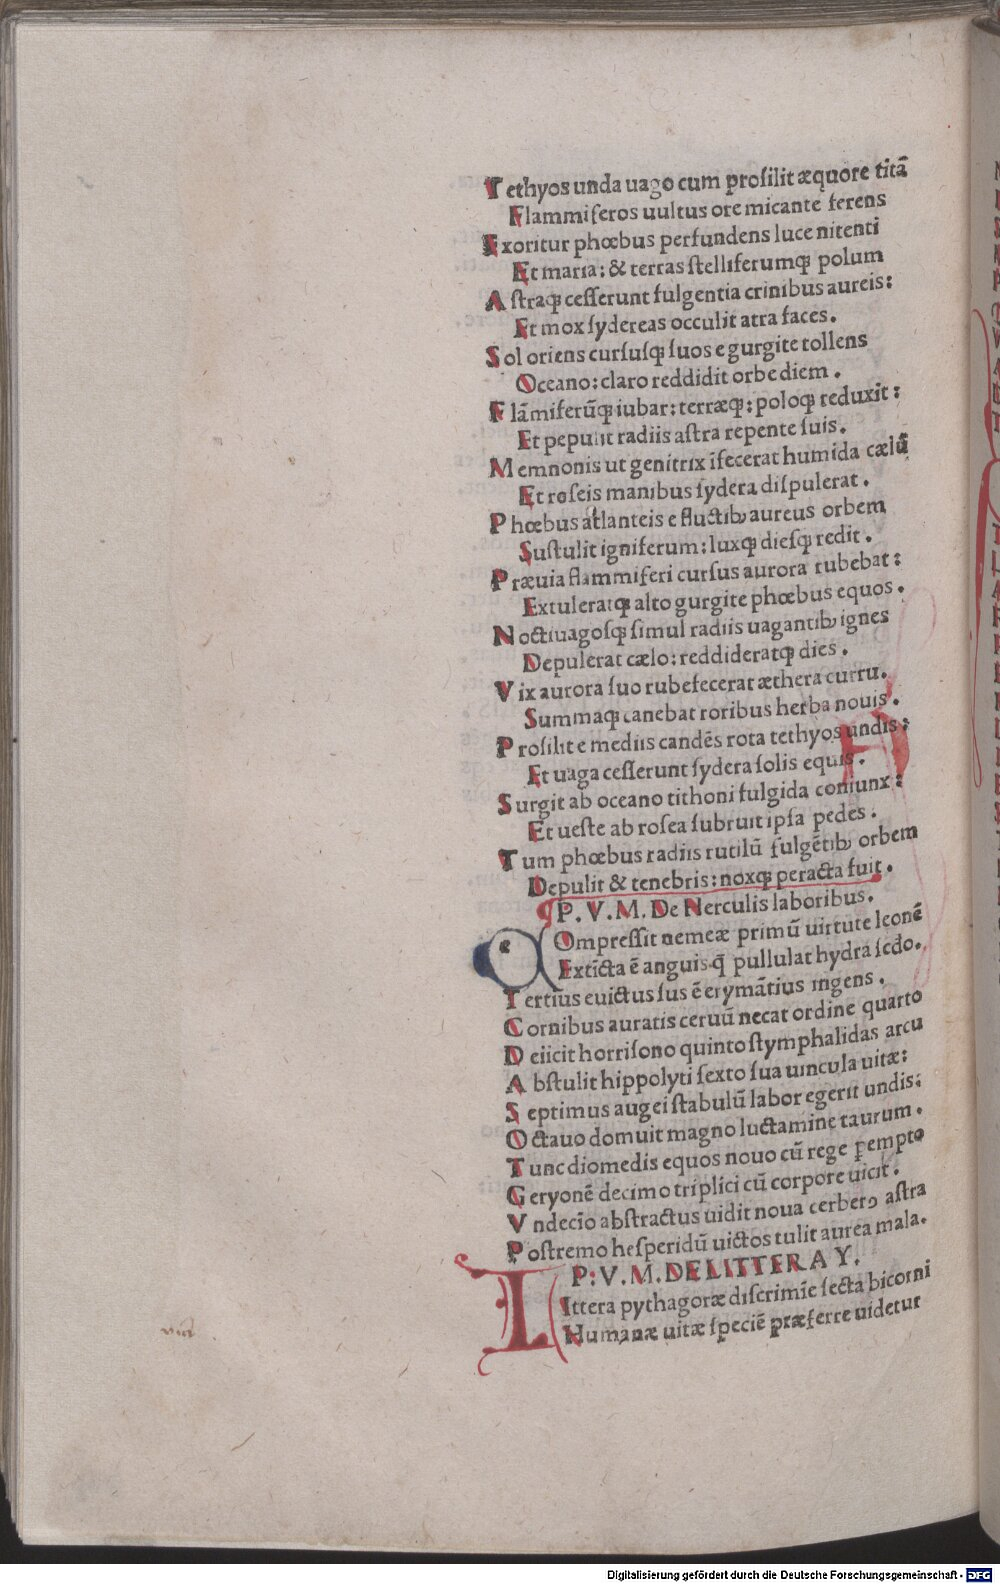 Tethyos unda uago cum proſilit æquore titã
Flammiferos uultus ore micante ferens
Exoritur phœbus perfundens luce nitenti
Et maria: & terras ſtelliferumqꝫ polum
Aſtraqꝫ ceſſerunt fulgentia crinibus aureis:
Et mox ſydereas occulit atra faces.
Sol oriens curſuſqꝫ ſuos e gurgite tollens
Oceano: claro reddidit orbe diem.
Flãmiferũqꝫ iubar: terræqꝫ: poloqꝫ reduxit:
Et pepulit radiis aſtra repente ſuis.
Memnonis ut genitrix ĩfecerat humida cælũ
Et roſeis manibus ſydera diſpulerat.
Phœbus atlanteis e fluctibꝫ aureus orbem
Suſtulit igniferum: luxqꝫ dieſqꝫ redit.
Præuia flammiferi curſus aurora rubebat:
Extuleratqꝫ alto gurgite phœbus equos.
Noctiuagoſqꝫ ſimul radiis uagantibꝫ ignes
Depulerat cælo: reddideratqꝫ dies.
Vix aurora ſuo rubefecerat æthera curru.
Summaqꝫ canebat roribus herba nouis.
Proſilit e mediis candẽs rota tethyos undis:
Et uaga ceſſerunt ſydera ſolis equis.
Surgit ab oceano tithoni fulgida coniunx:
Et ueſte ab roſea ſubruit ipſa pedes.
Tum phœbus radiis rutilũ fulgẽtibꝫ orbem
Depulit & tenebris: noxqꝫ peracta fuit.
P. V. M. De Herculis laboribus.
Compreſſit nemeæ primũ uirtute leonẽ
Extĩcta ẽ anguis q̃ pullulat hydra ſcḋo.
Tertius euictus ſus ẽ erymãtius ingens.
Cornibus auratis ceruũ necat ordine quarto
Deiicit horriſono quinto ſtymphalidas arcu
Abſtulit hippolyti ſexto ſua uincula uitæ:
Septimus augei ſtabulũ labor egerit undis:
Octauo domuit magno luctamine taurum.
Tunc diomedis equos nouo cũ rege ꝑempto
Geryonẽ decimo triplici cũ corpore uicit.
Vndecio abſtractus uidit noua cerbero aſtra
Poſtremo heſperidũ uictos tulit aurea mala.
P: V. M. DE LITTERA Y.
Littera pythagoræ diſcrimĩe ſecta bicorni
Humanæ uitæ ſpeciẽ præferre uidetur
Digitalisierung gefördert durch die Deutsche Forschungsgemeinschaft - DFG